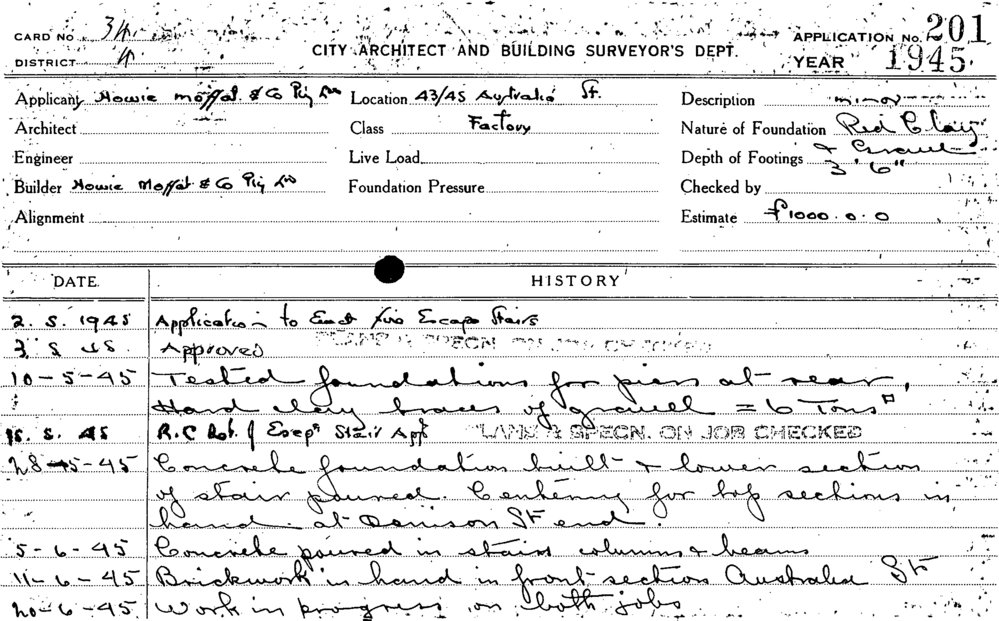 CARD No 34. APPLICATION No. 201
DISTRICT 4 CITY ARCHITECT AND BUILDING SURVEYOR'S DEPT. YEAR 1945.
Applicant Howie Moffat & Co Pty Ltd Location 43/45 Australia St. Description minor
Architect Class Factory Nature of Foundation Red Clay
Engineer Live Load & Gravel
Depth of Footings 3' 6"
Builder Howie Moffat & Co Pty Ltd Foundation Pressure Checked by
Alignment Estimate £1000.0.0
DATE HISTORY
2. 5. 1945 Application to Erect fire Escape Stairs
3 5 45 Approved PLANS & SPECN. ON JOB CHECKED
10-5-45 Tested foundations for piers at rear,
Hard clay traces of gravel = 6 Tons □
15. 5. 45 R.C Stair PLANS & SPECN. ON JOB CHECKED
28-5-45 Concrete foundation built & lower section
of stair poured. Centering for top sections in
hand at Denison St end.
5-6-45 Concrete poured in stairs columns & beams
11-6-45 Brickwork in hand in front section Australia St
20-6-45 Work in progress on both jobs